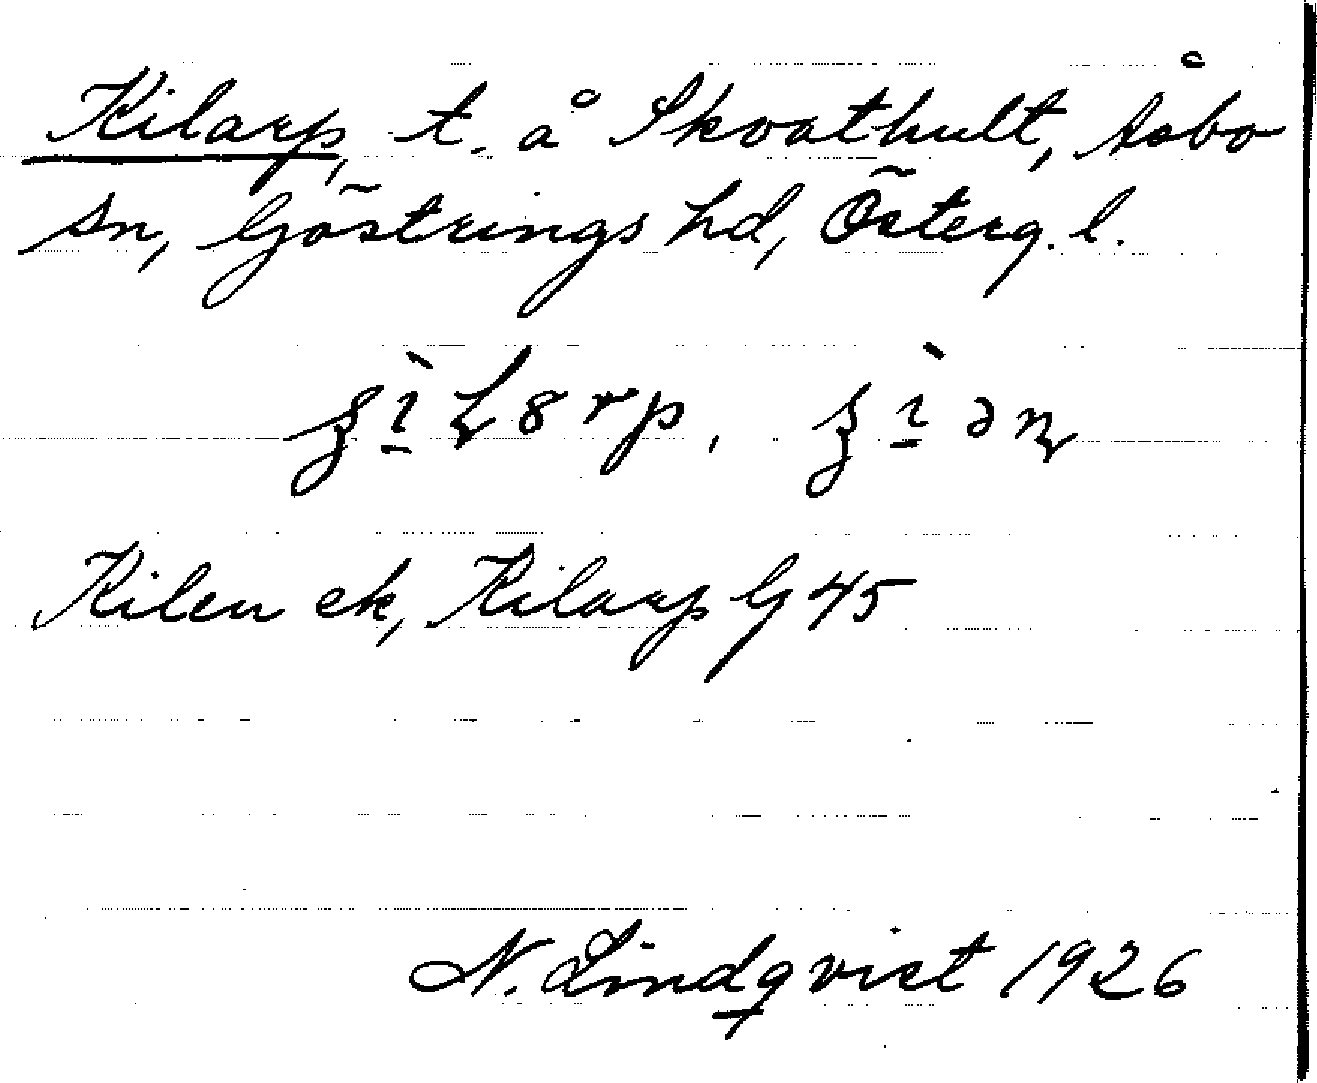 Kilarp, t. å Skoathult, Åsbo
sn, Göstrings hd, Österg. l.
Kilen ek, Kilarp G 45
N. Lindqvist 1926